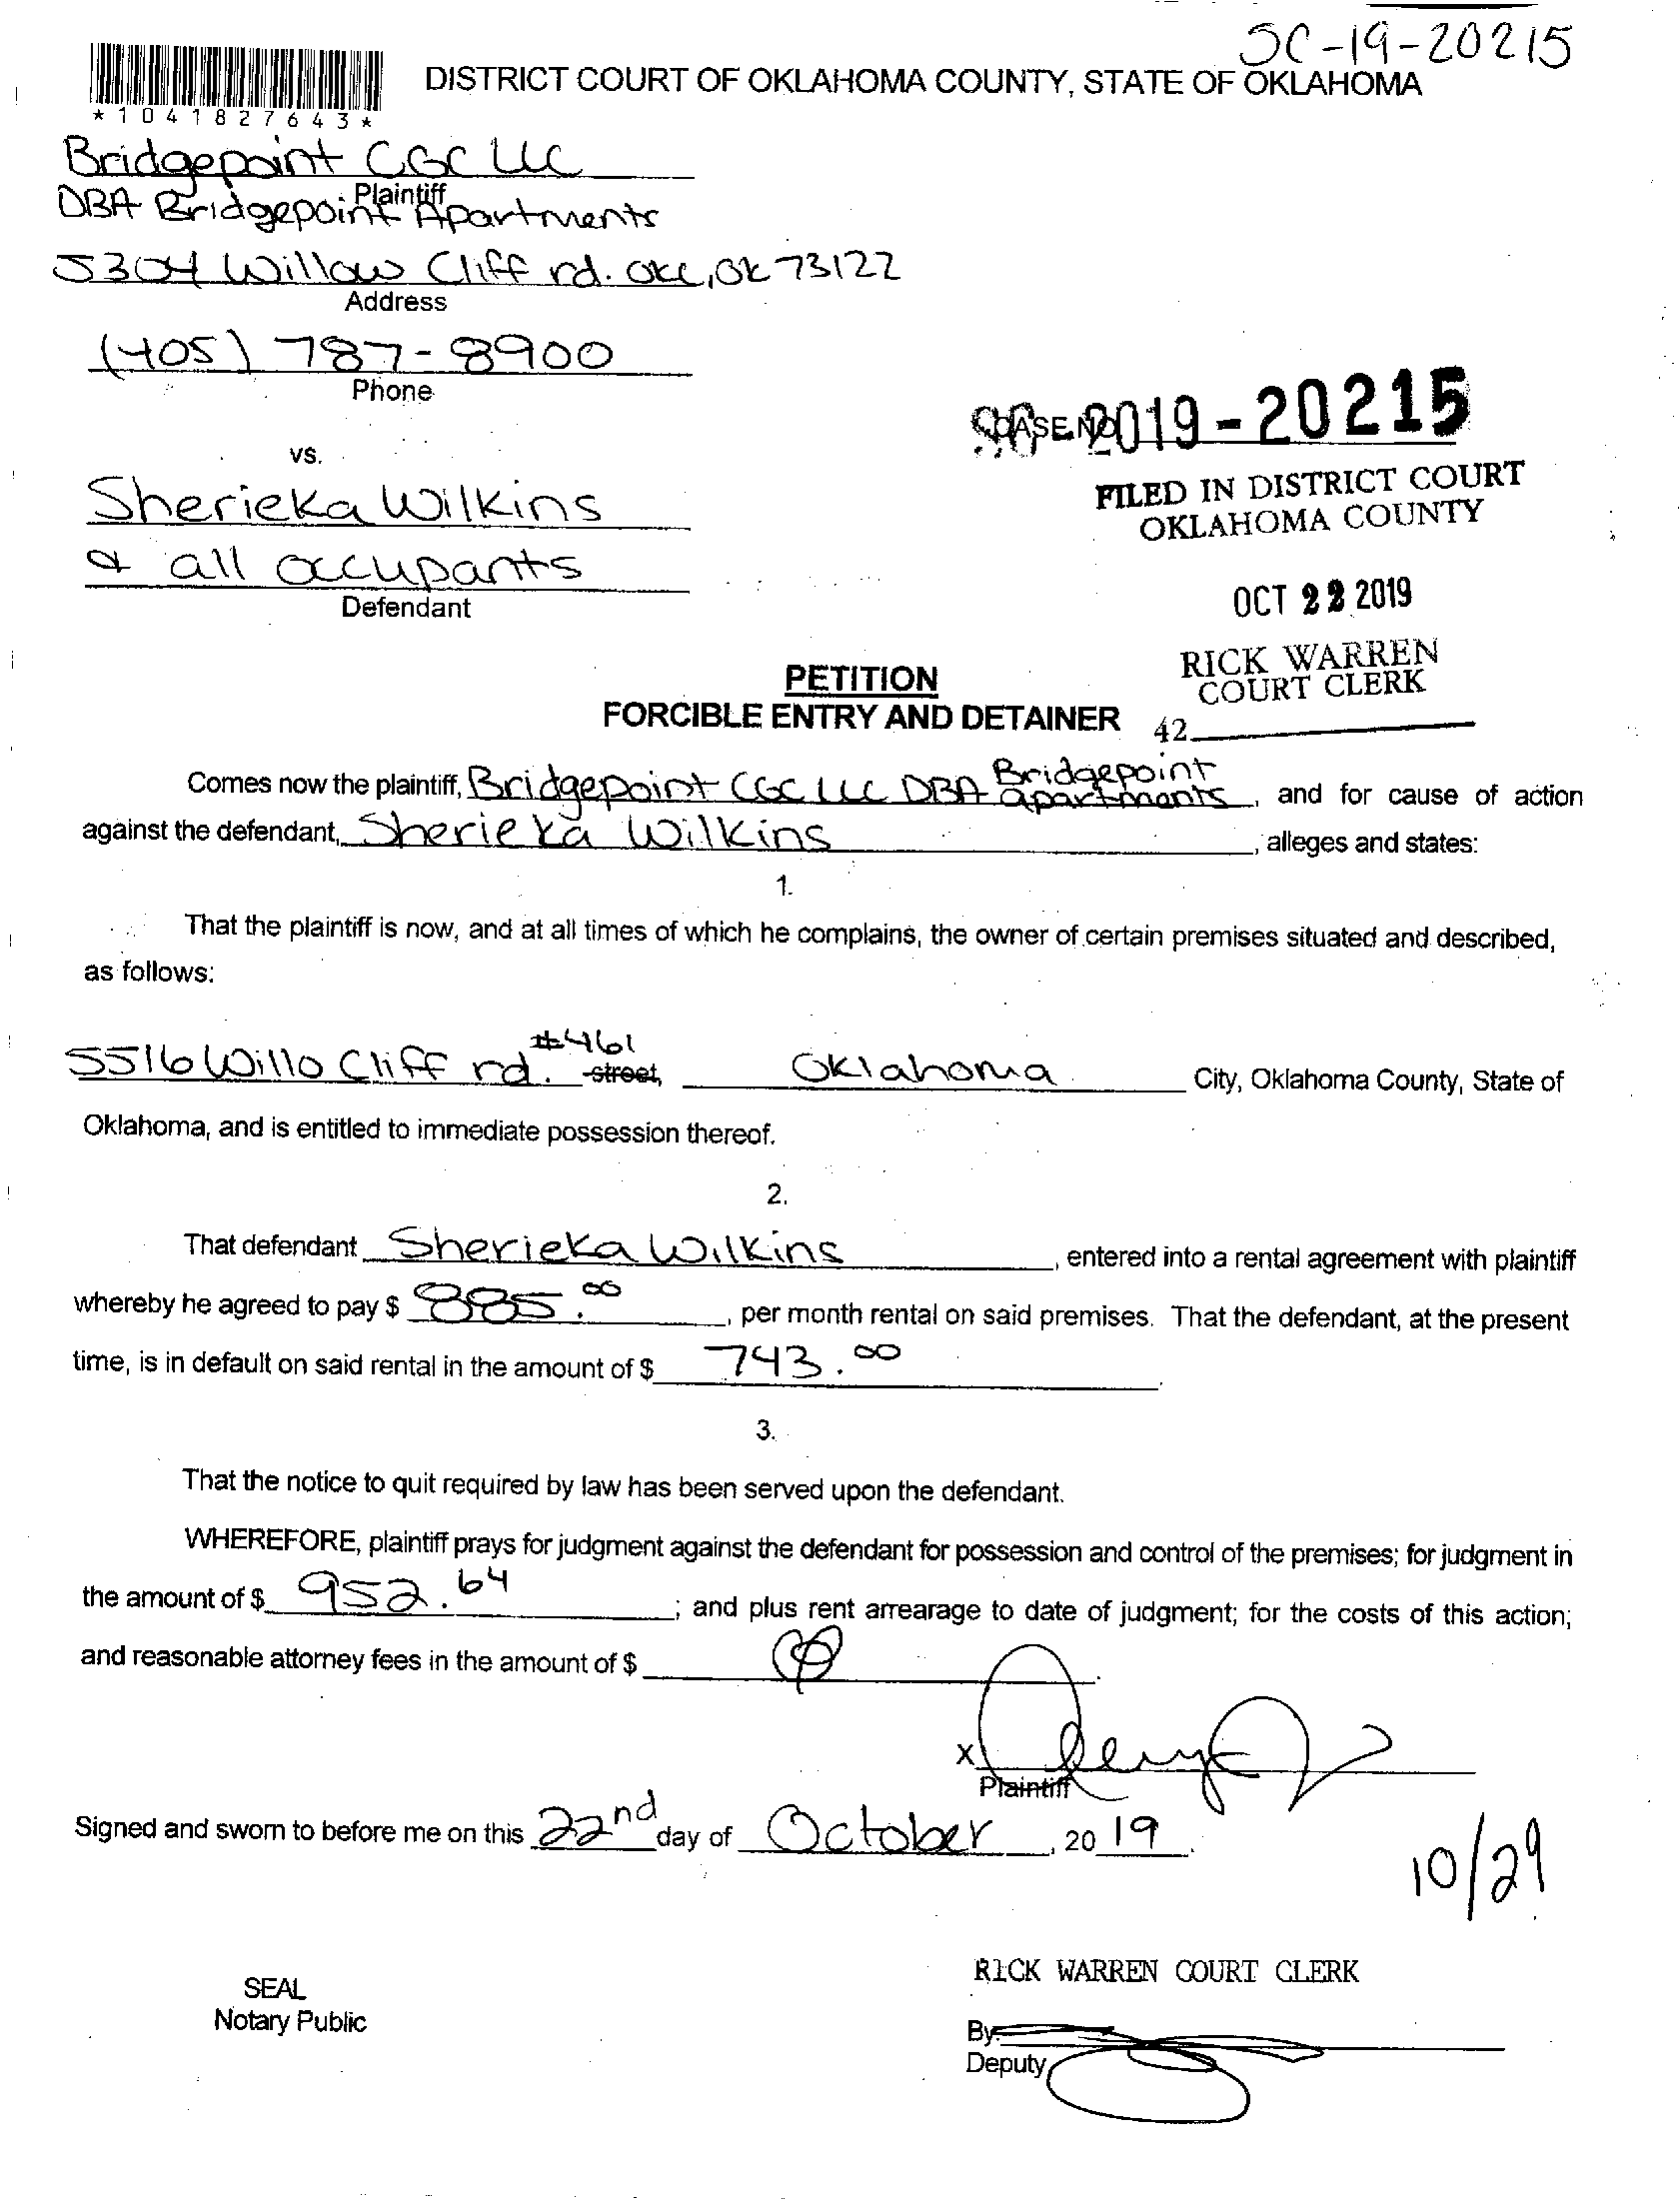 SC-19-20215
DISTRICT COURT OF OKLAHOMA COUNTY, STATE OF OKLAHOMA
*1041827643*
Bridgepoint CGC LLC
Plaintiff
DBA Bridgepoint Apartments
5304 Willow Cliff rd. OKC, OK 73122
Address
(405) 787-8900
Phone
CASE NO.
SC 2019-20215
vs.
FILED IN DISTRICT COURT
OKLAHOMA COUNTY
Sherieka Wilkins
& all occupants
Defendant
OCT 22 2019
RICK WARREN
COURT CLERK
42
PETITION
FORCIBLE ENTRY AND DETAINER
Comes now the plaintiff, Bridgepoint CGC LLC DBA Bridgepoint apartments, and for cause of action
against the defendant, Sherieka Wilkins, alleges and states:
1.
That the plaintiff is now, and at all times of which he complains, the owner of certain premises situated and described,
as follows:
5516 Willo Cliff rd. #461 street, Oklahoma City, Oklahoma County, State of
Oklahoma, and is entitled to immediate possession thereof.
2.
That defendant Sherieka Wilkins, entered into a rental agreement with plaintiff
whereby he agreed to pay $ 885.00, per month rental on said premises. That the defendant, at the present
time, is in default on said rental in the amount of $ 743.00.
3.
That the notice to quit required by law has been served upon the defendant.
WHEREFORE, plaintiff prays for judgment against the defendant for possession and control of the premises; for judgment in
the amount of $ 952.64; and plus rent arrearage to date of judgment; for the costs of this action;
and reasonable attorney fees in the amount of $
X
Plaintiff
Signed and sworn to before me on this 22nd day of October, 2019.
10/29
RICK WARREN COURT CLERK
SEAL
Notary Public
By:
Deputy